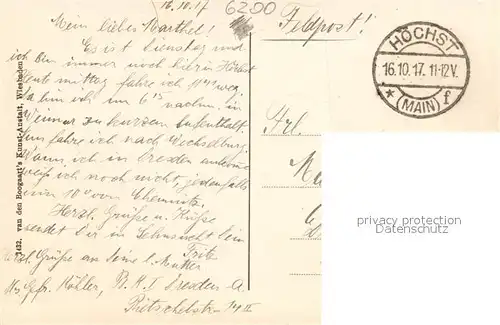 16.10.17
6290
Feldpost!
Mein liebes Marthel!
Es ist Dienstag und
ich bin immer noch hier in Höchst
heute mittag fahre ich weg
da bin ich um 6 nachm. in
Weimar zu kurzem Aufenthalt.
fahre ich nach Wechselburg.
Wann ich in Dresden ankomme
weiß ich noch nicht, jedenfalls
10 von Chemnitz.
Herzl. Grüße und Küsse
sendet Dir in Sehnsucht Dein
Fritz
Herzl. Grüße an Deine l. Mutter
Gefr. Köhler, Dresden-A.
Pietschelstr. 14 II
HÖCHST
16.10.17. 11-12V.
* (MAIN) f
Frl.
7432. van den Boogaart's Kunst-Anstalt, Wiesbaden
copyright protection
privacy protection